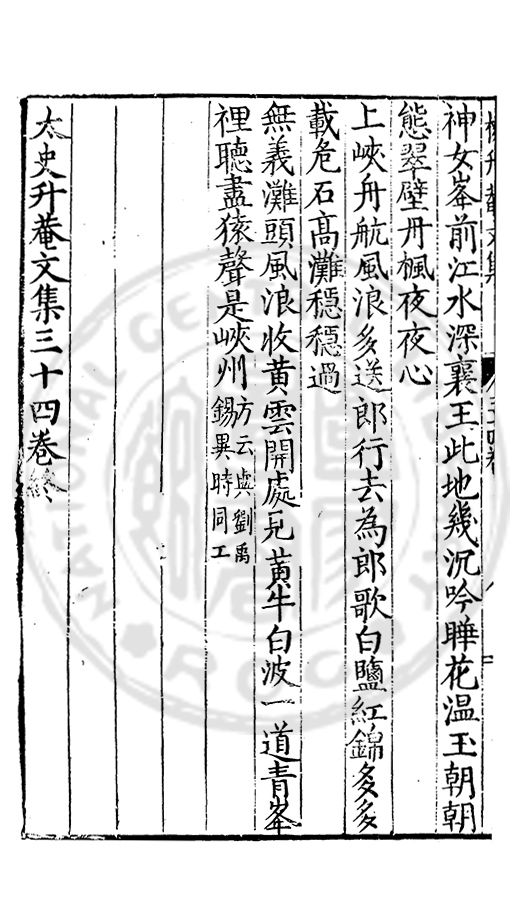 神女峯前江水深襄王此地幾沉吟曄花温玉朝朝
態翠壁丹楓夜夜心
上峽舟航風浪多送郎行去為郎歌白鹽紅錦多多
載危石高灘穩穩過
無義灘頭風浪收黄雲開處見黄牛白波一道青峯
裡聽盡猿聲是峽州方云與劉禹
錫異時同工
太史升菴文集三十四卷終